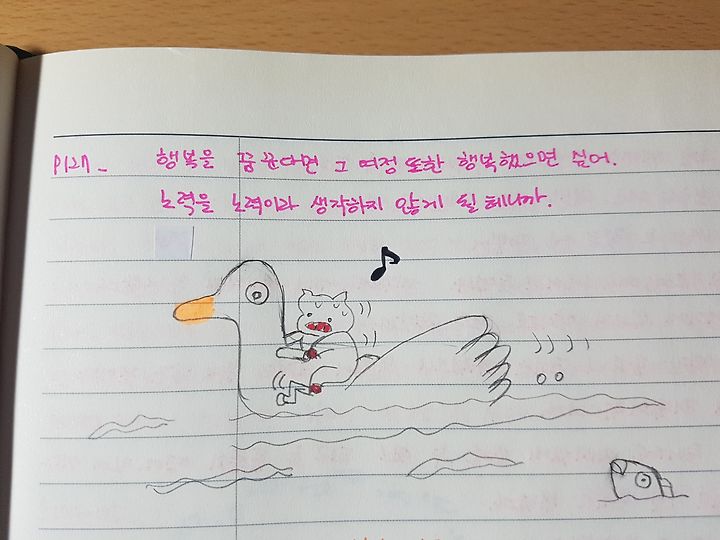 P127_ 행복을 꿈꾼다면 그 여정 또한 행복했으면 싶어.
노력을 노력이라 생각하지 않게 될 테니까.